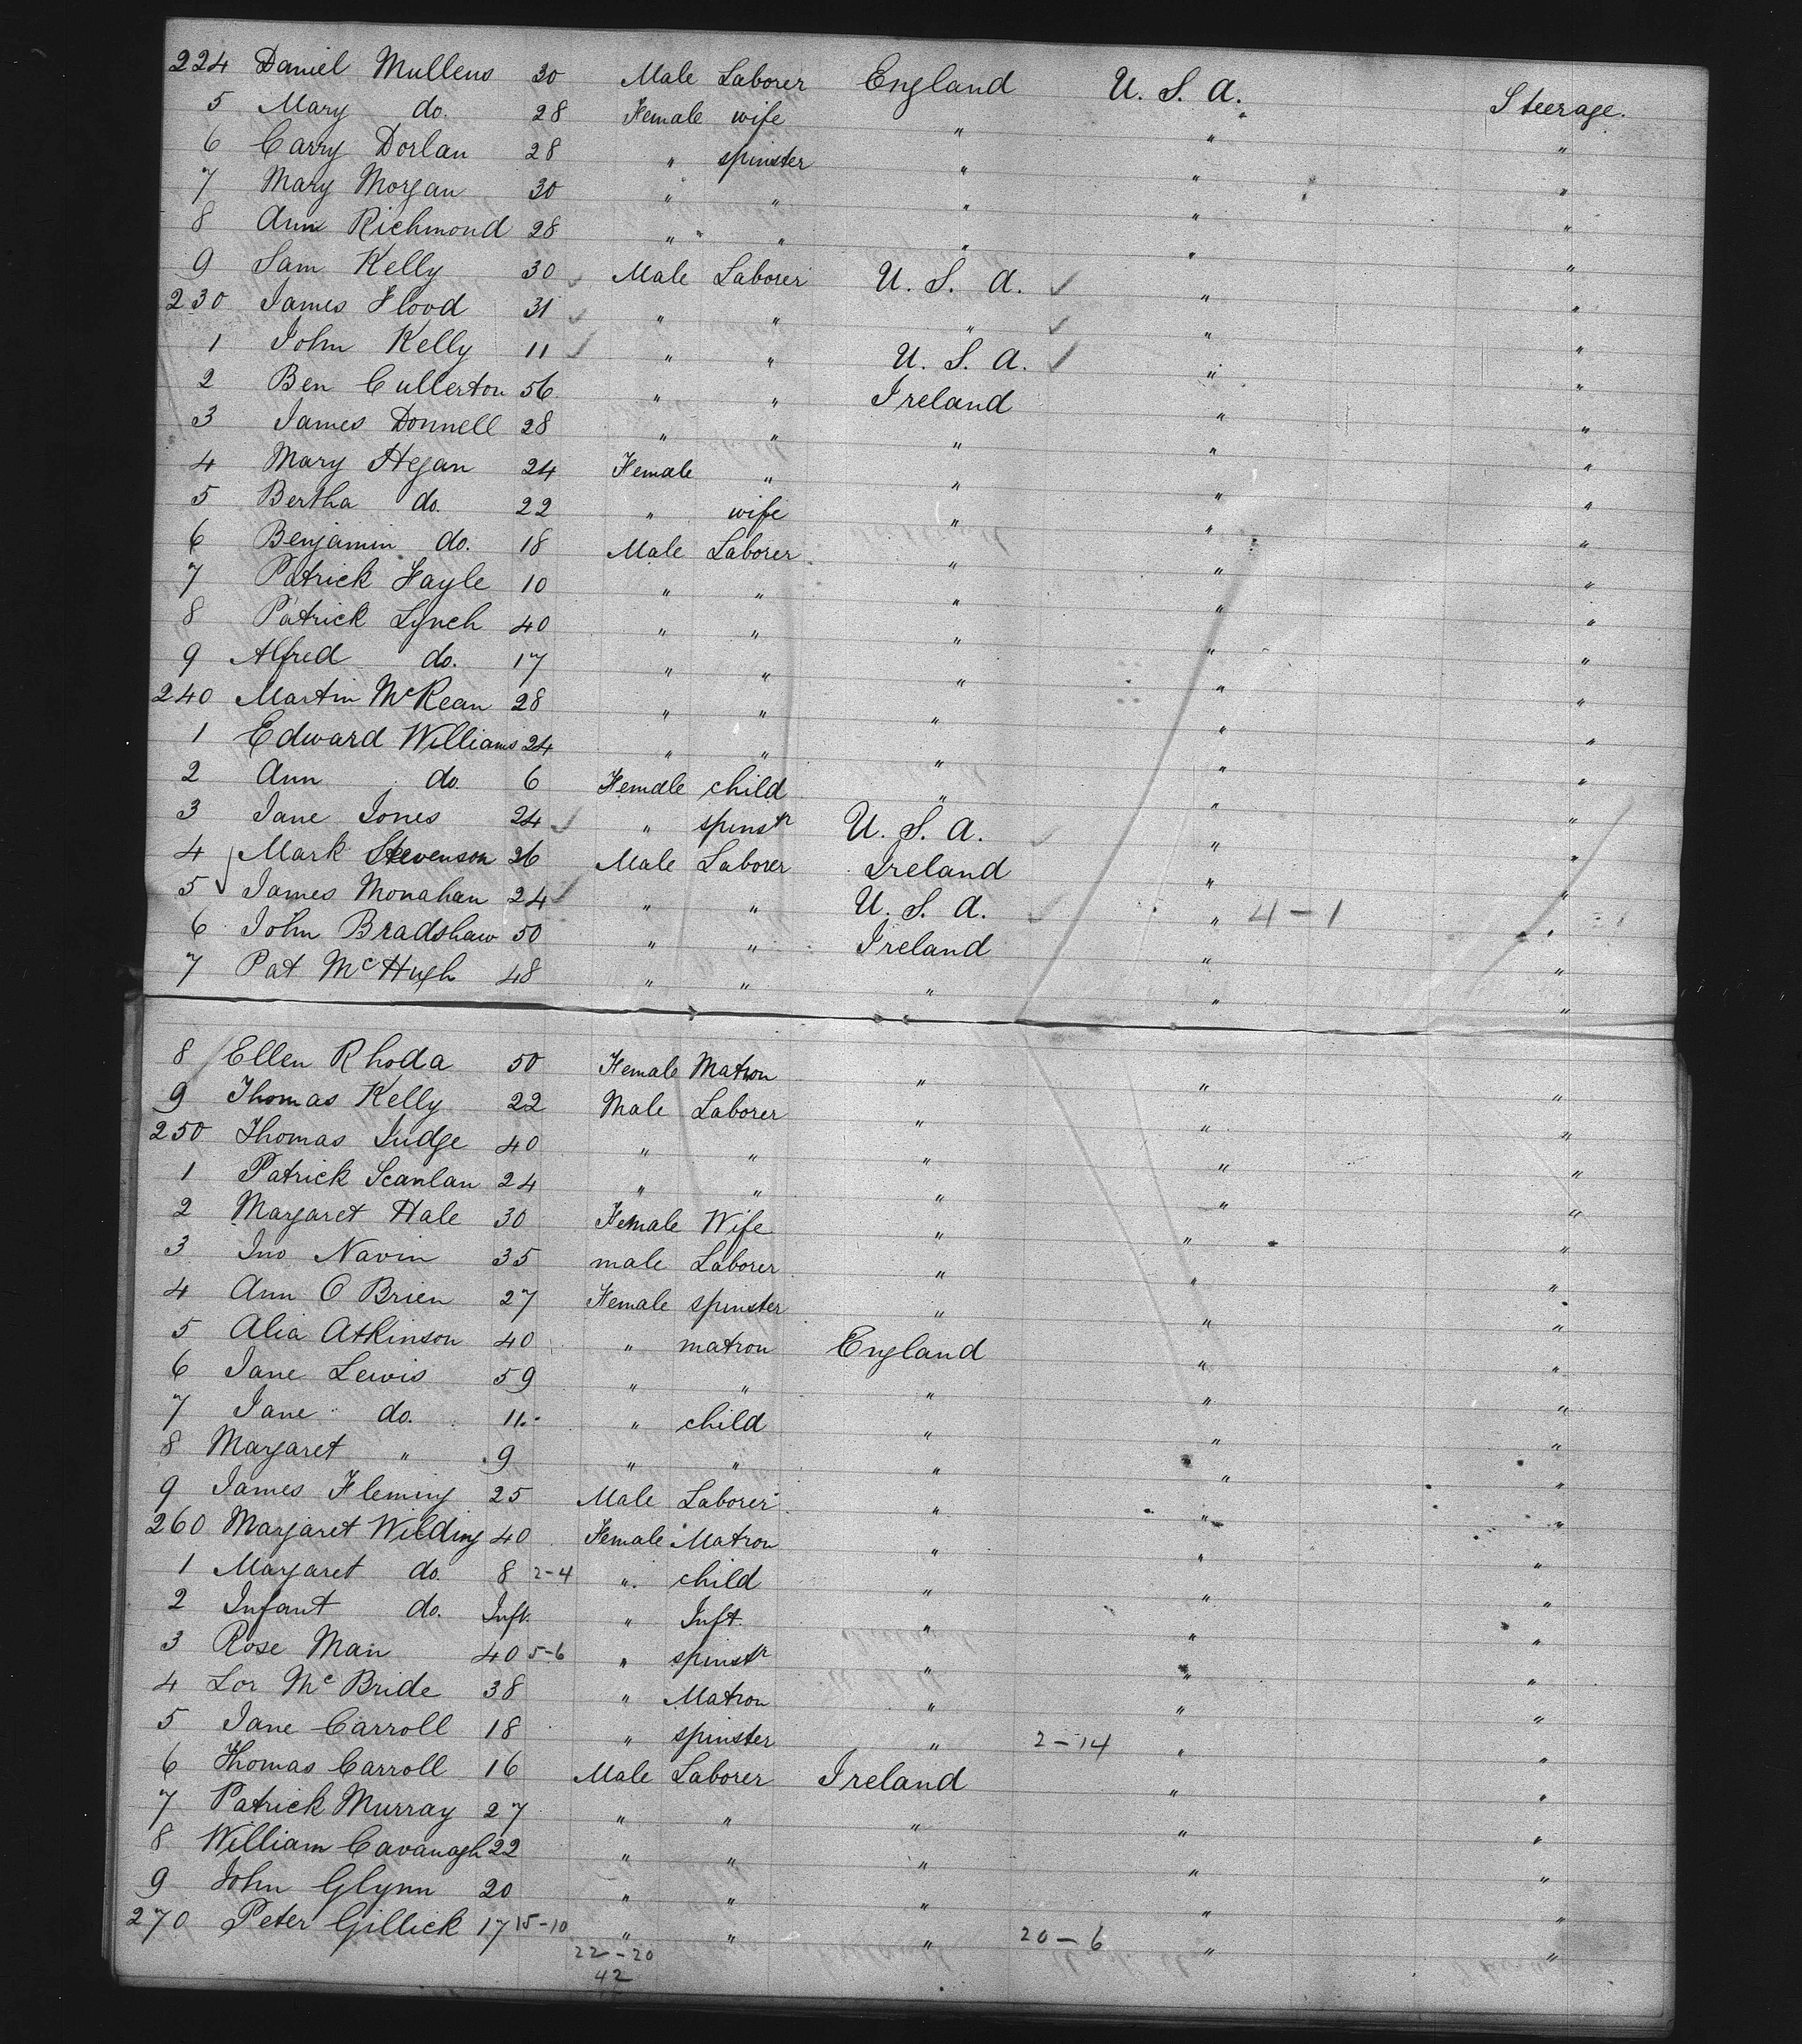 224 Daniel Mullens 30 Male Laborer England U. S. A. Steerage.
5 Mary do. 28 Female wife " " "
6 Carry Dorlan 28 " spinster " " "
7 Mary Morgan 30 " " " " "
8 Ann Richmond 28 " " " " "
9 Sam Kelly 30 Male Laborer U. S. A. " "
230 James Flood 31 " " " " "
1 John Kelly 11 " " U. S. A. " "
2 Ben Cullerton 56 " " Ireland " "
3 James Donnell 28 " " " " "
4 Mary Hegan 24 Female " " " "
5 Bertha do. 22 " wife " " "
6 Benjamin do. 18 Male Laborer " " "
7 Patrick Fayle 10 " " " " "
8 Patrick Lynch 40 " " " " "
9 Alfred do. 17 " " " " "
240 Martin McKean 28 " " " " "
1 Edward Williams 24 " " " " "
2 Ann do. 6 Female child " " "
3 Jane Jones 24 " spinstr U. S. A. " "
4 Mark Stevenson 26 Male Laborer Ireland " "
5 James Monahan 24 " " U. S. A. " 4-1 "
6 John Bradshaw 50 " " Ireland " "
7 Pat McHugh 48 " " " " "
8 Ellen Rhoda 50 Female Matron " " "
9 Thomas Kelly 22 Male Laborer " " "
250 Thomas Judge 40 " " " " "
1 Patrick Scanlan 24 " " " " "
2 Margaret Hale 30 Female Wife " " "
3 Jno Navin 35 male Laborer " " "
4 Ann O Brien 27 Female spinster " " "
5 Alia Atkinson 40 " matron England " "
6 Jane Lewis 59 " " " " "
7 Jane do. 11 " child " " "
8 Margaret " 9 " " " " "
9 James Fleming 25 Male Laborer " " "
260 Margaret Wilding 40 Female Matron " " "
1 Margaret do. 8 2-4 " child " " "
2 Infant do. Inft. " Inft. " " "
3 Rose Man 40 5-6 " spinstr " " "
4 Lor McBride 38 " Matron " " "
5 Jane Carroll 18 " spinster " 2-14 " "
6 Thomas Carroll 16 Male Laborer Ireland " "
7 Patrick Murray 27 " " " " "
8 William Cavanagh 22 " " " " "
9 John Glynn 20 " " " " "
270 Peter Gillick 17 15-10 " " " 20-6 " "
22-20
42